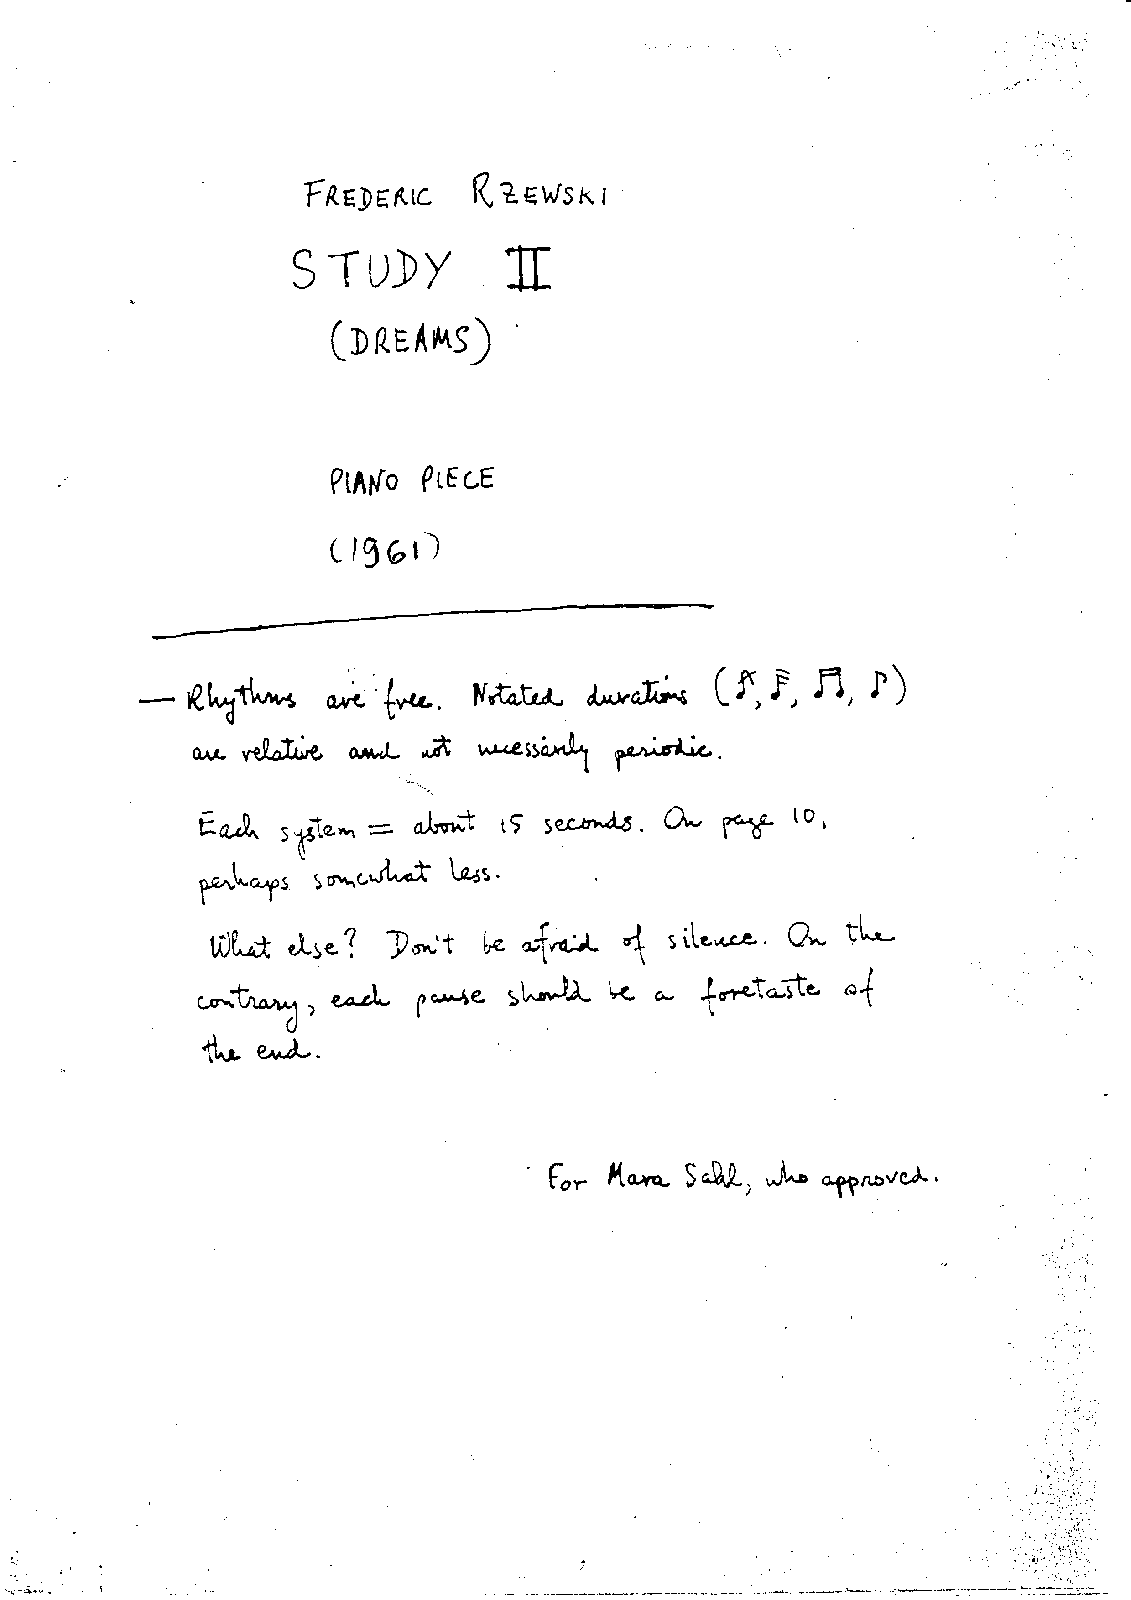 FREDERIC RZEWSKI
STUDY II
(DREAMS)
PIANO PIECE
(1961)
— Rhythms are free. Notated durations (𝆔♪, 𝅘𝅥𝅰, ♬, ♪)
are relative and not necessarily periodic.
Each system = about 15 seconds. On page 10,
perhaps somewhat less.
What else? Don't be afraid of silence. On the
contrary, each pause should be a foretaste of
the end.
For Mara Sahl, who approved.